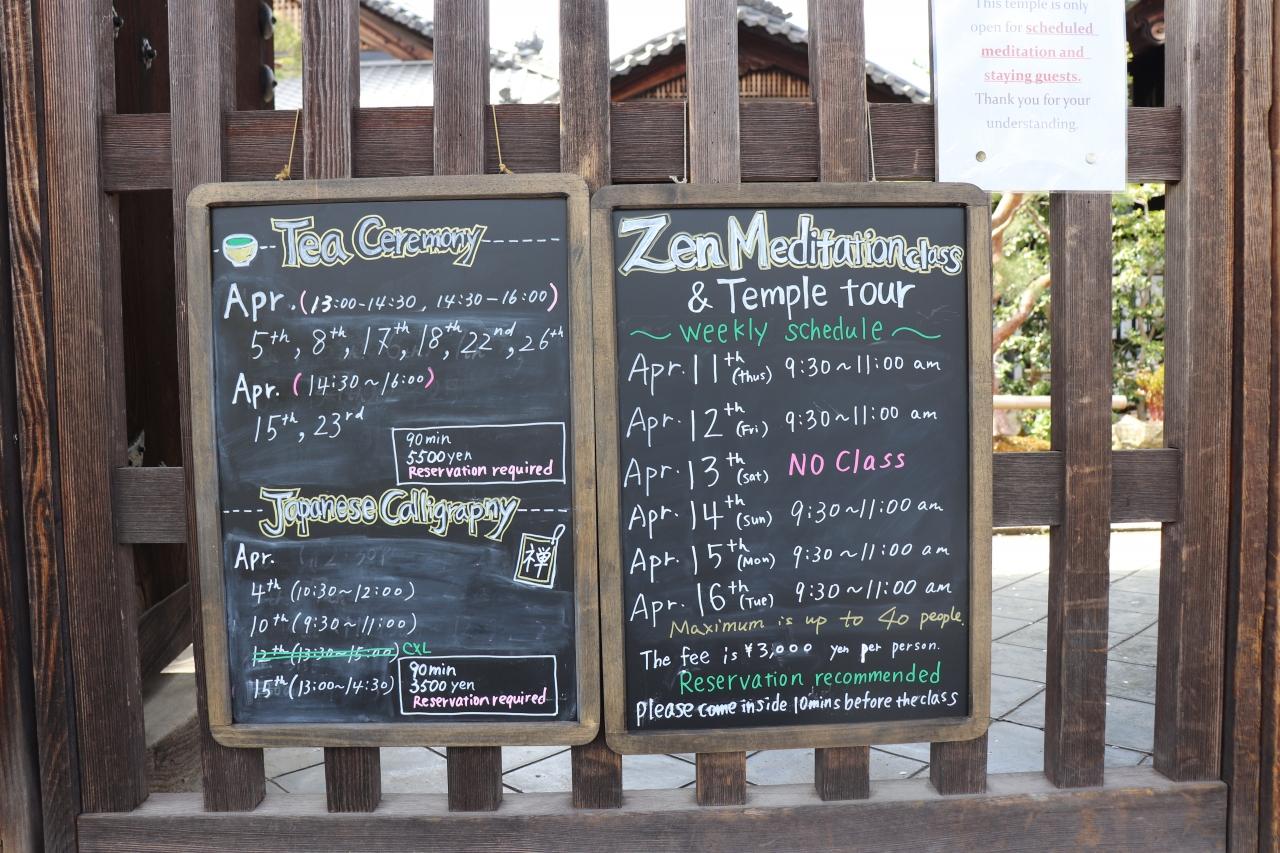 This temple is only
open for scheduled
meditation and
staying guests.
Thank you for your
understanding.
Tea Ceremony
Apr. (13:00-14:30, 14:30-16:00)
5th, 8th, 17th, 18th, 22nd, 26th
Apr. (14:30~16:00)
15th, 23rd
90min
5500yen
Reservation required
Japanese Calligrapny
禅
Apr.
4th (10:30~12:00)
10th (9:30~11:00)
12th (13:30~15:00) CXL
15th (13:00~14:30)
90min
3500 yen
Reservation required
Zen Meditation class
& Temple tour
~ weekly schedule ~
Apr. 11th (Thus) 9:30~11:00 am
Apr. 12th (Fri) 9:30~11:00 am
Apr. 13th (Sat) NO Class
Apr. 14th (Sun) 9:30~11:00 am
Apr. 15th (Mon) 9:30~11:00 am
Apr. 16th (Tue) 9:30~11:00 am
Maximum is up to 40 people.
The fee is ¥3,000 yen per person.
Reservation recommended
please come inside 10mins before the class